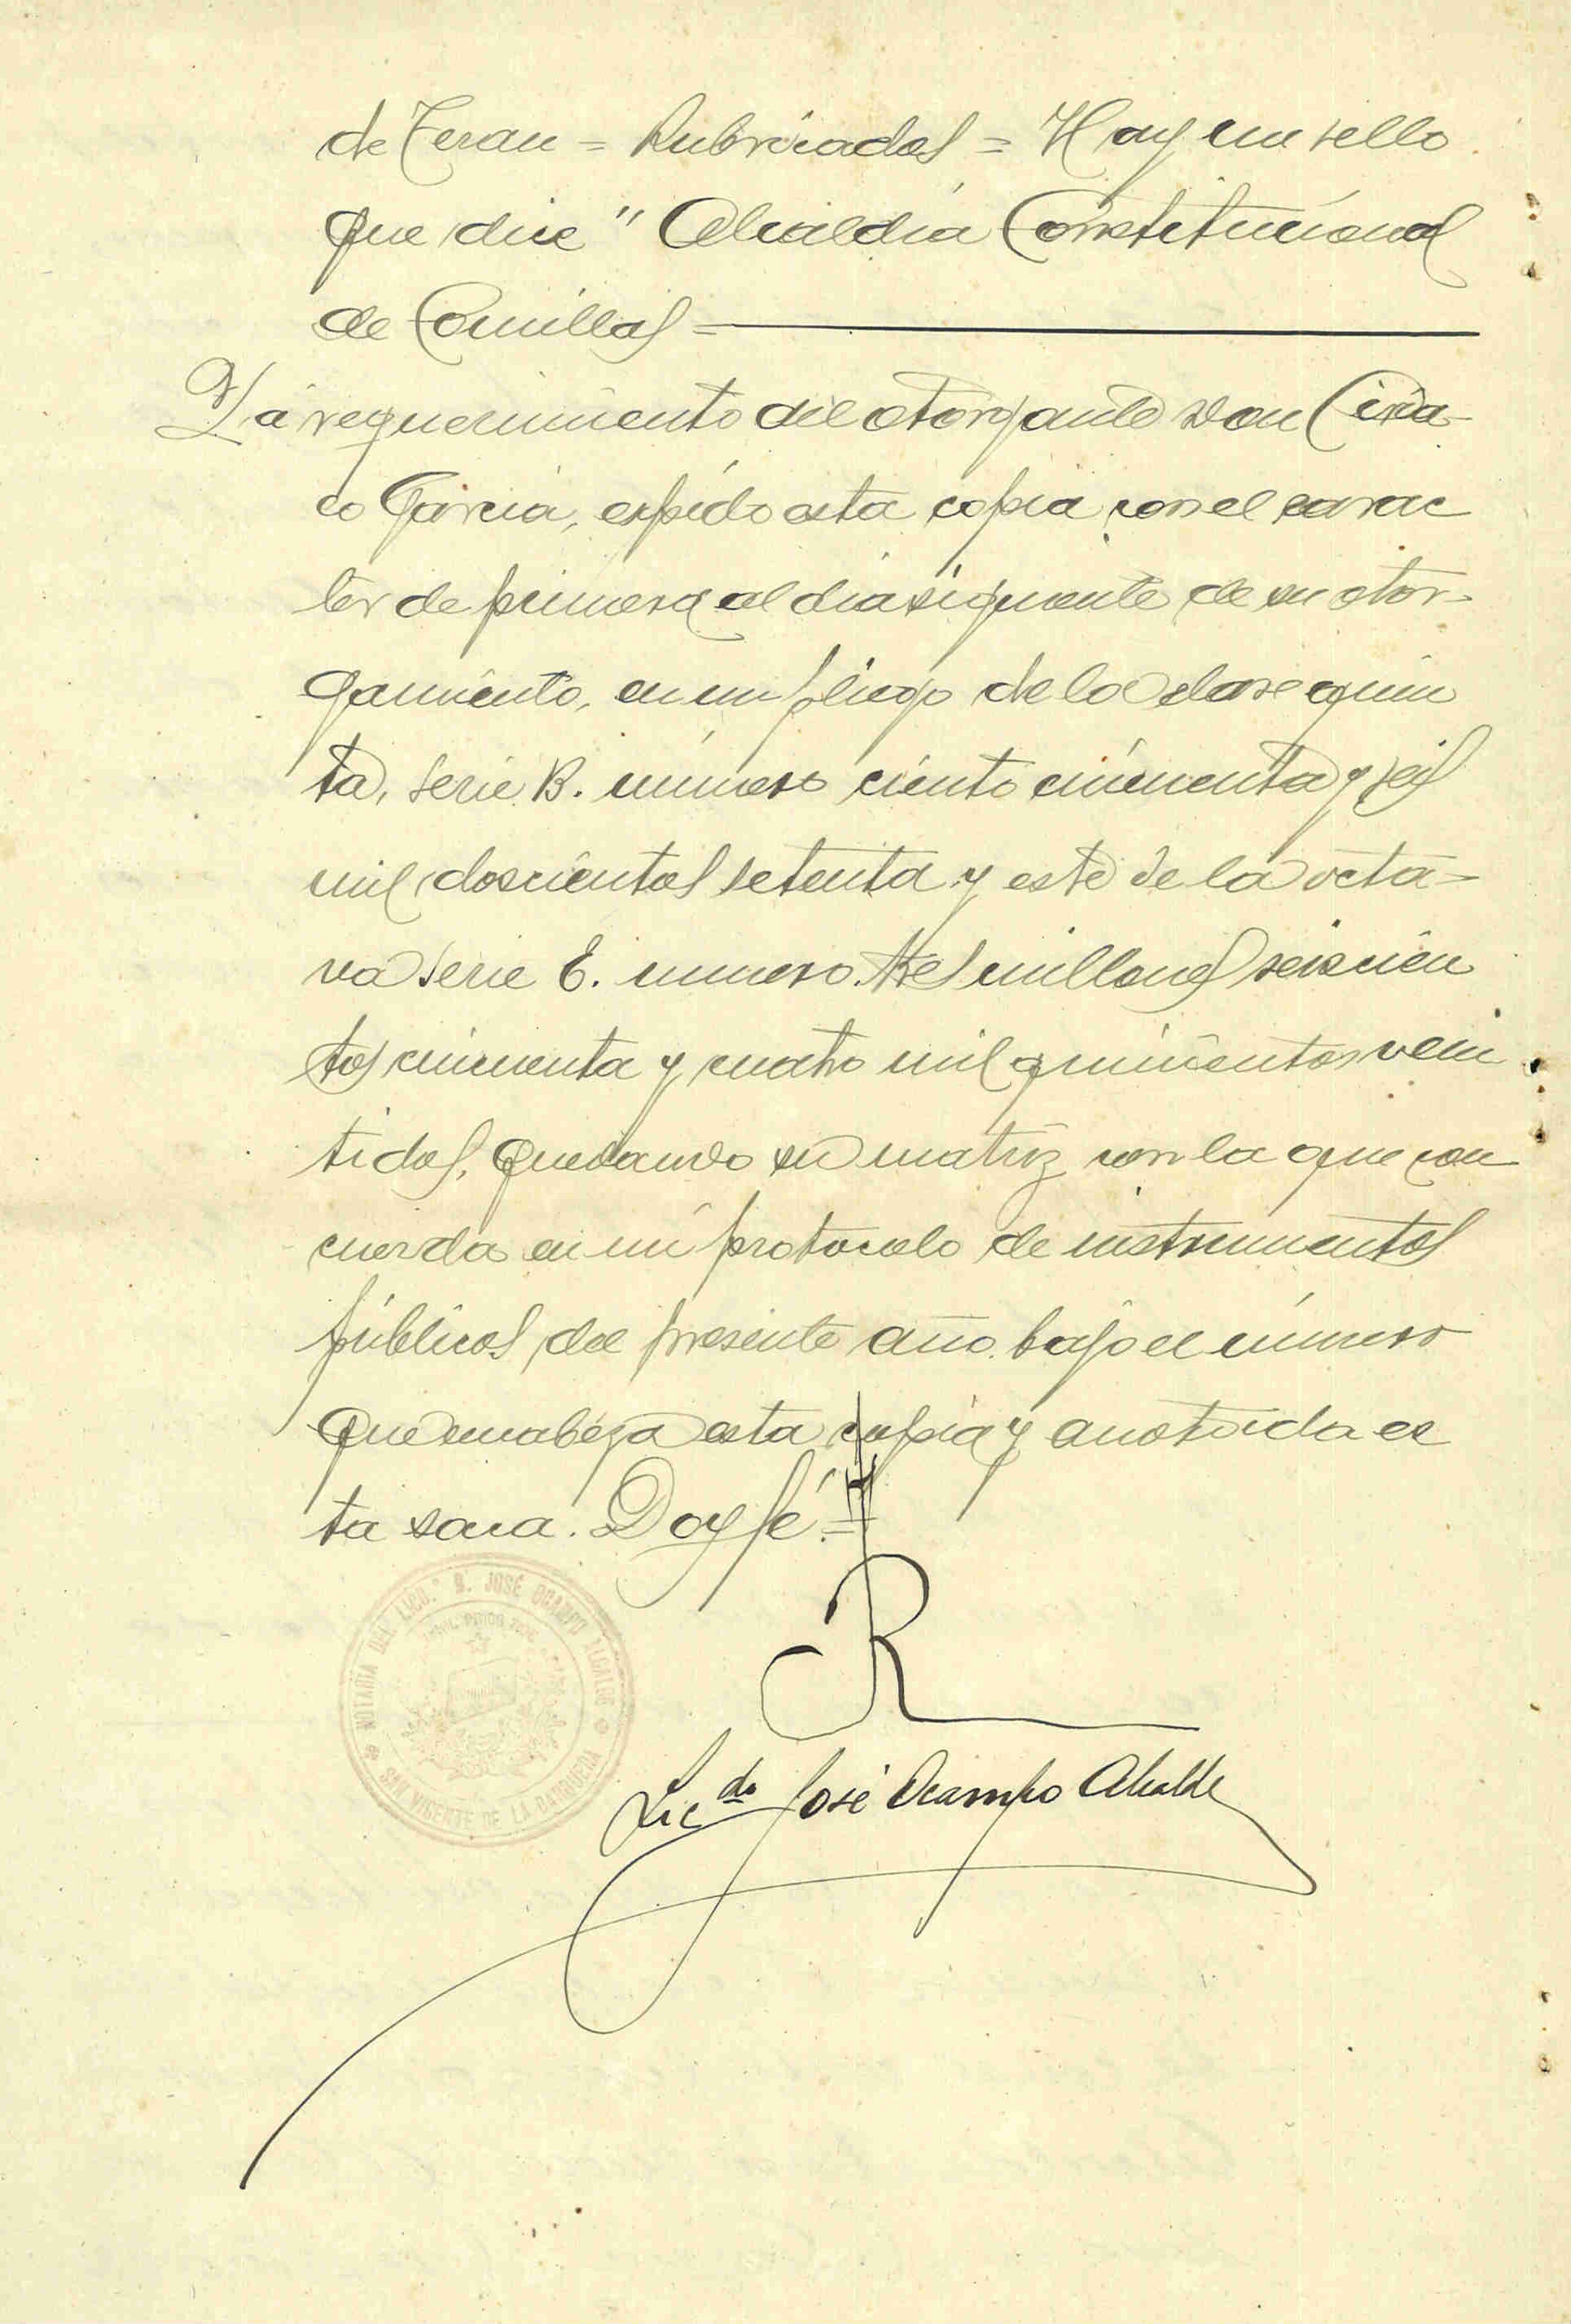 de Teran = Rubricados = Hay un sello
que dice " Alcaldia Constitucional
de Comillas =
Y á requerimiento del otorgante Don Ciria-
co Garcia, espido esta copia con el carac
ter de primera al dia siguiente de su otor-
gamiento, en un pliego de la clase quin
ta, serie B. número ciento cincuenta y seis
mil doscientos setenta y este de la octa-
va serie E. numero tres millones seiscien
tos cincuenta y cuatro mil quinientos vein
tidos, quedando su matriz con la que con
cuerda en mi protocolo de instrumentos
públicos del presente año bajo el número
que encabeza esta copia y anotada es
ta saca. Doy fé =
NOTARIA DEL LICDO. D. JOSÉ OCAMPO ALCALDE
SAN VICENTE DE LA BARQUERA
Licdo José Ocampo Alcalde